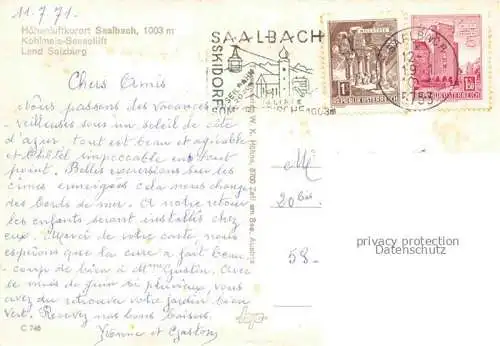 11.7.71.
Höhenluftkurort Saalbach, 1003 m
Kohlmais-Sessellift
Land Salzburg
Chers Amis
Nous passons des vacances mer-
veilleuses sous un soleil de côte
d'azur tout est beau et agréable
et l'hôtel impeccable en tout
point. Belles excursions sur les
cimes enneigées cela nous change
des bords de mer. A notre retour
les enfants seront installés chez
eux. Merci de votre carte nous
espérons que la cure a fait beau-
coup de bien à Mme Gustin. Avec
le mois de juin si pluvieux, vous
avez du retrouver votre jardin bien
vert. Recevez nos bons baisers.
Yvonne et Gaston
C 746
W. K. Höhne, 5700 Zell am See, Austria
SAALBACH
SKIDORF
1003m
1
REPUBLIK ÖSTERREICH
1.50
REPUBLIK ÖSTERREICH
SAALBACH
5753
M
20 bis
58-
privacy protection
Datenschutz